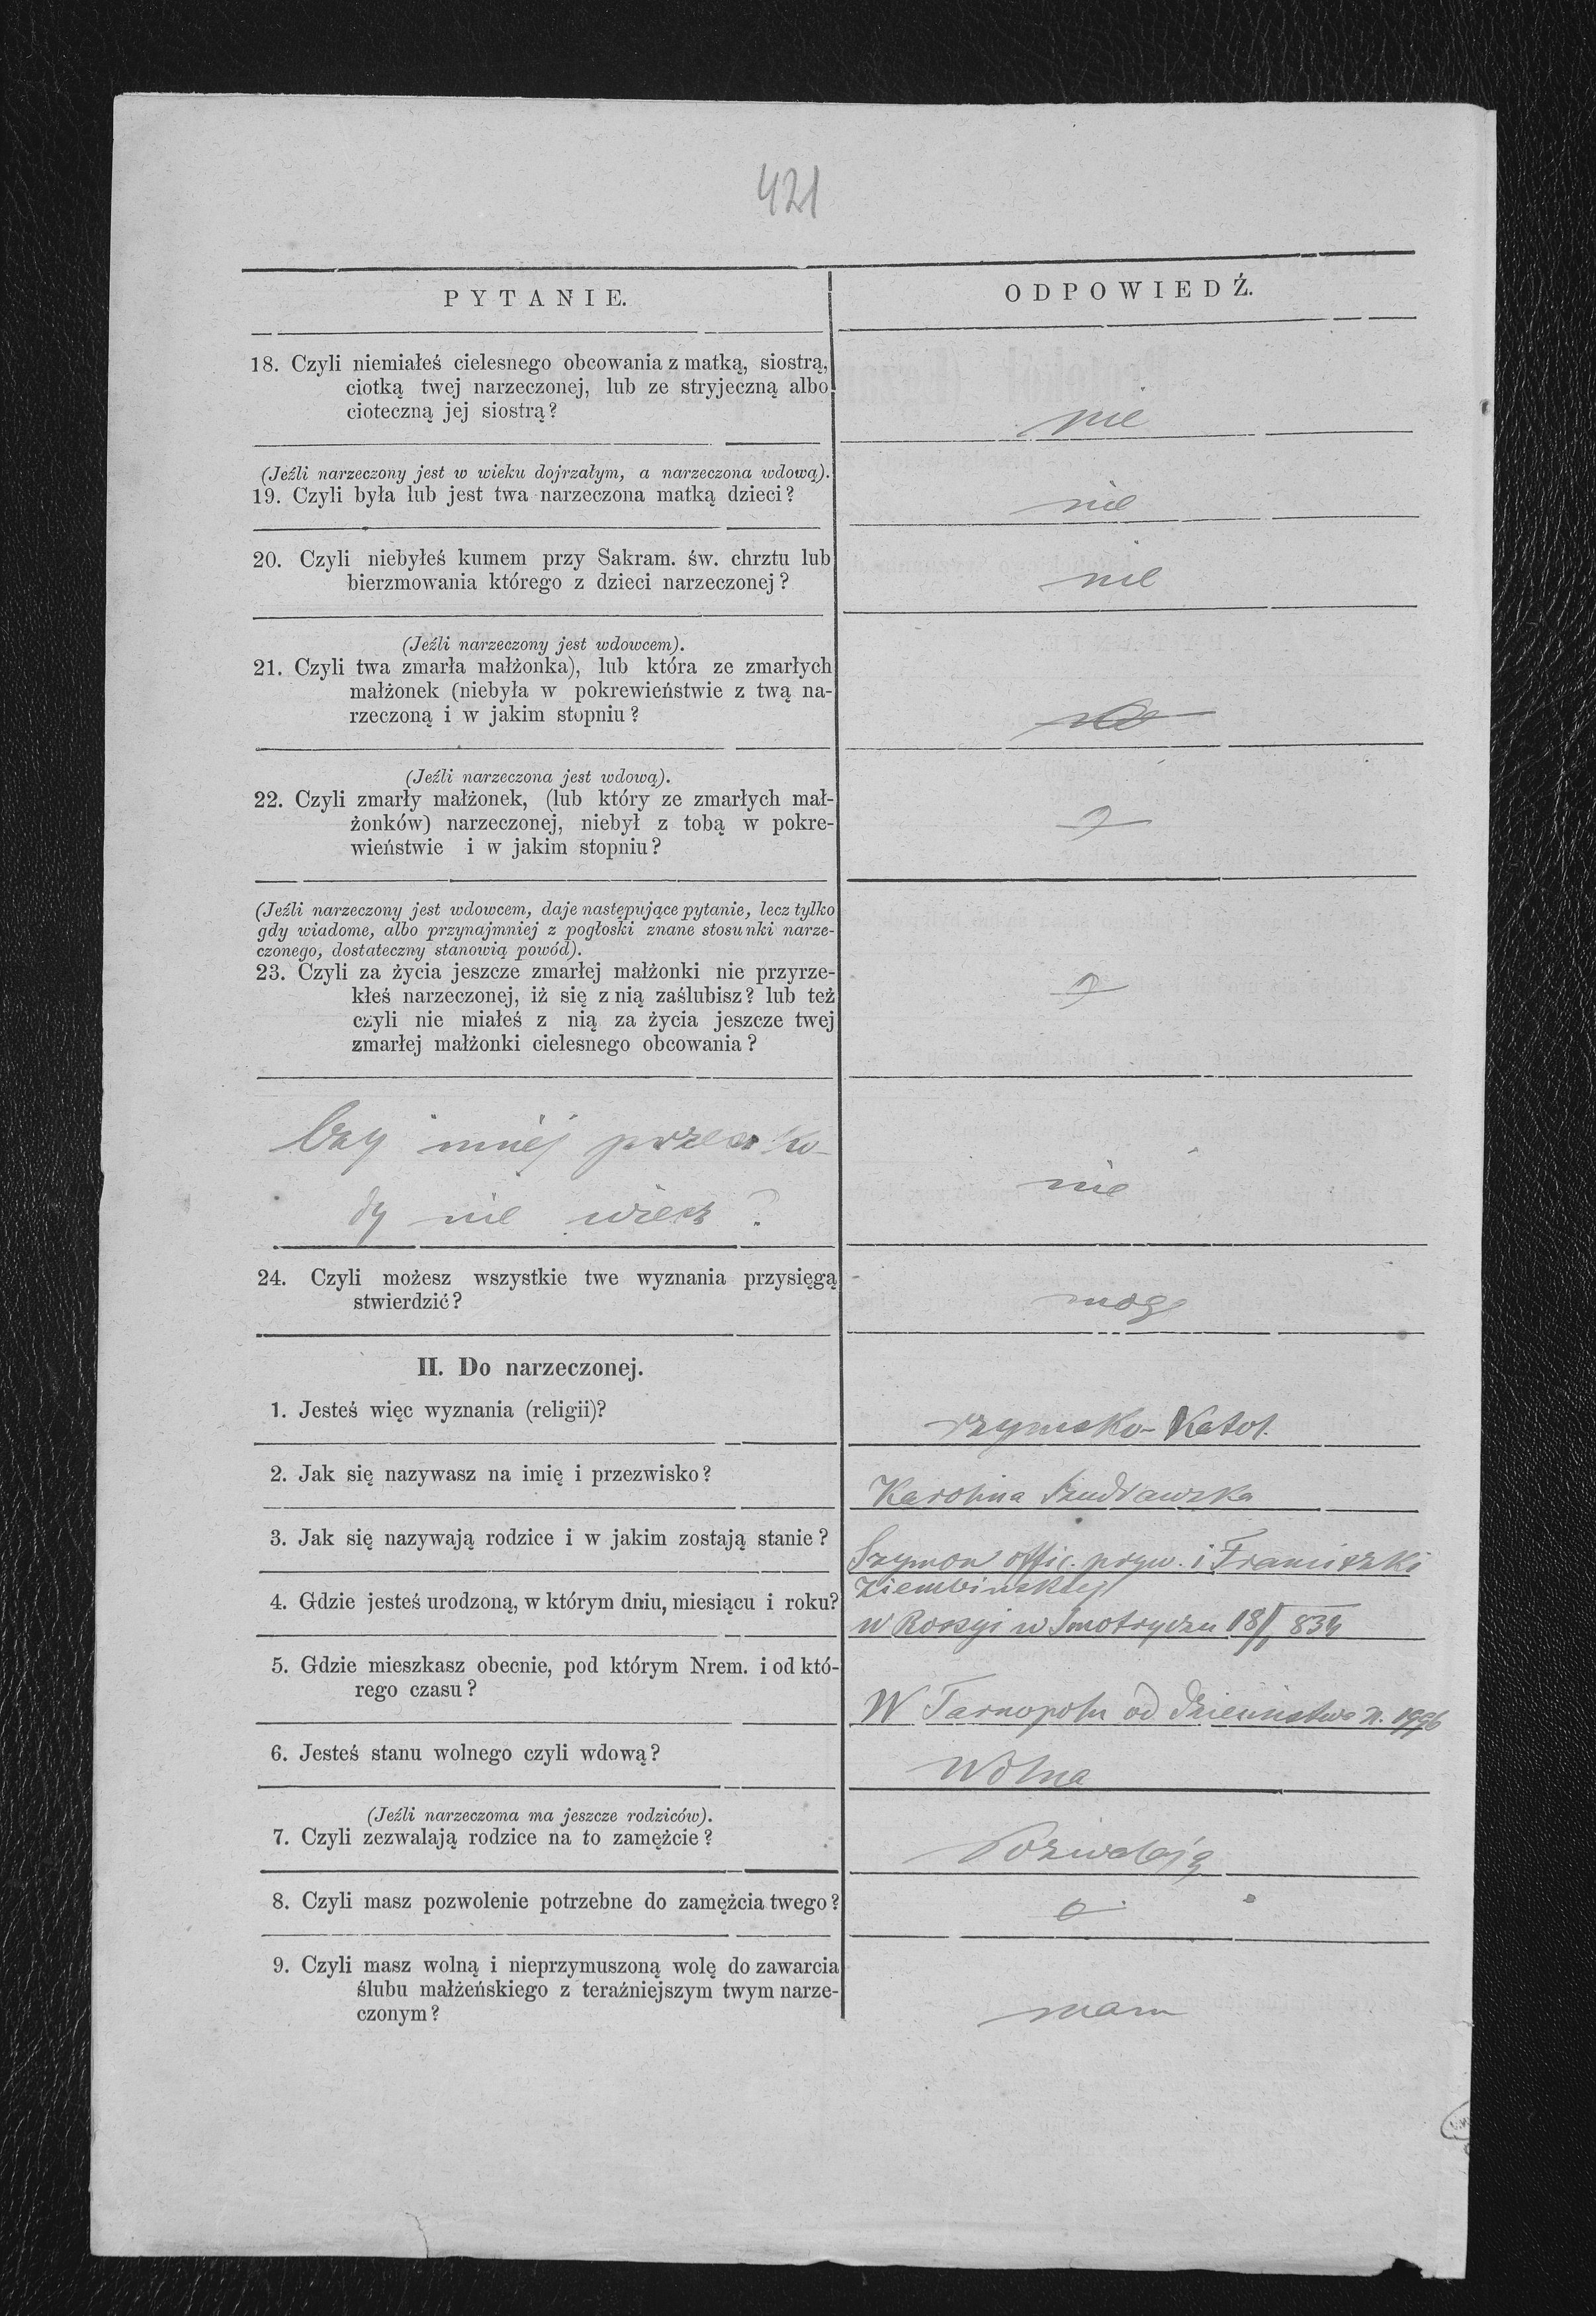 421
PYTANIE.
ODPOWIEDŹ.
18. Czyli niemiałeś cielesnego obcowania z matką, siostrą,
ciotką twej narzeczonej, lub ze stryjeczną albo
cioteczną jej siostrą?
nie
(Jeźli narzeczony jest w wieku dojrzałym, a narzeczona wdową).
19. Czyli była lub jest twa narzeczona matką dzieci?
nie
20. Czyli niebyłeś kumem przy Sakram. św. chrztu lub
bierzmowania którego z dzieci narzeczonej?
nie
(Jeźli narzeczony jest wdowcem).
21. Czyli twa zmarła małżonka), lub która ze zmarłych
małżonek (niebyła w pokrewieństwie z twą na-
rzeczoną i w jakim stopniu?
(Jeźli narzeczona jest wdową).
22. Czyli zmarły małżonek, (lub który ze zmarłych mał-
żonków) narzeczonej, niebył z tobą w pokre-
wieństwie i w jakim stopniu?
(Jeźli narzeczony jest wdowcem, daje następujące pytanie, lecz tylko
gdy wiadome, albo przynajmniej z pogłoski znane stosunki narze-
czonego, dostateczny stanowią powód).
23. Czyli za życia jeszcze zmarłej małżonki nie przyrze-
kłeś narzeczonej, iż się z nią zaślubisz? lub też
czyli nie miałeś z nią za życia jeszcze twej
zmarłej małżonki cielesnego obcowania?
Czy innej przeszko-
dy nie wiesz?
nie
24. Czyli możesz wszystkie twe wyznania przysięgą
stwierdzić?
mogę
II. Do narzeczonej.
1. Jesteś więc wyznania (religii)?
rzymsko-Katol.
2. Jak się nazywasz na imię i przezwisko?
Karolina
3. Jak się nazywają rodzice i w jakim zostają stanie?
Szymon offic. pryw. i Franciszki
Ziembińskiej
4. Gdzie jesteś urodzoną, w którym dniu, miesiącu i roku?
w Rosyi w Smotryczu 18/I 834
5. Gdzie mieszkasz obecnie, pod którym Nrem. i od któ-
rego czasu?
W Tarnopolu od dzieciństwa N.
6. Jesteś stanu wolnego czyli wdową?
Wolna
(Jeźli narzeczoma ma jeszcze rodziców).
7. Czyli zezwalają rodzice na to zamężcie?
Pozwalają
8. Czyli masz pozwolenie potrzebne do zamężcia twego?
9. Czyli masz wolną i nieprzymuszoną wolę do zawarcia
ślubu małżeńskiego z teraźniejszym twym narze-
czonym?
mam